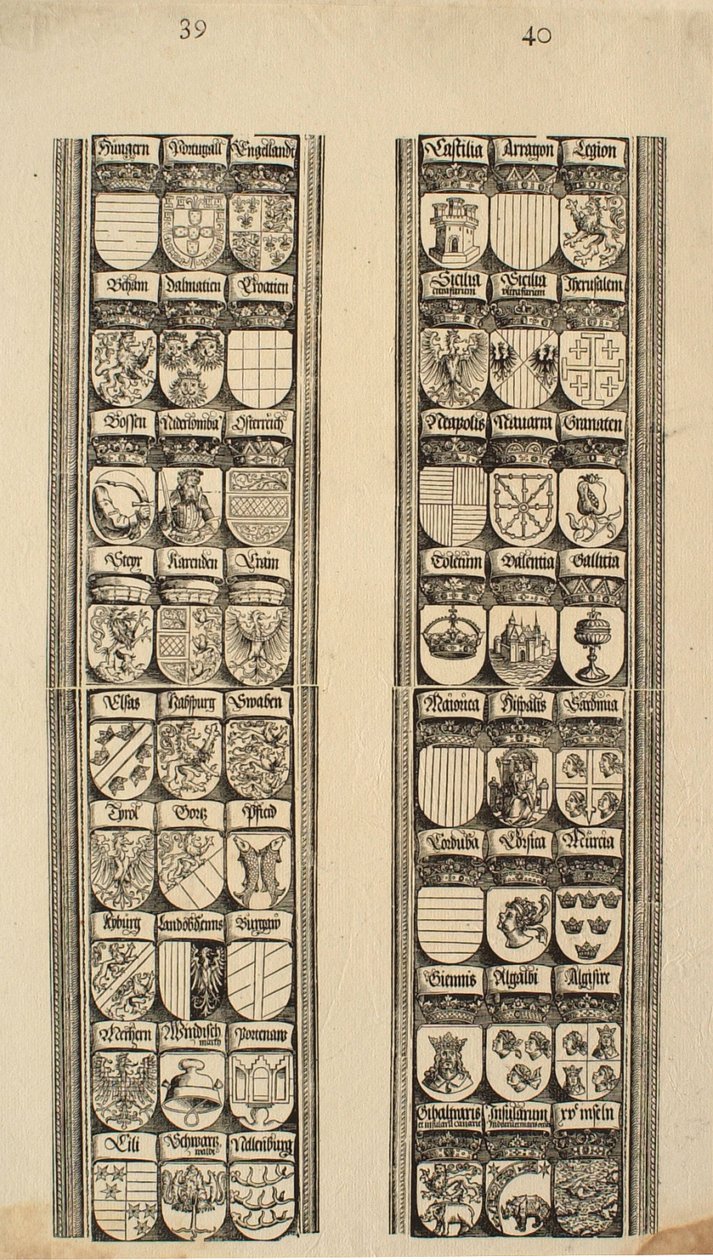 39
Hungern Portugall Engellandt
Beham Dalmatien Croatien
Bossen Osterreich
Steyr Karenden Crain
Elsas Habspurg Swaben
Tyrol Gortz Pfierd
Kyburg Landobdenns Burgaw
Mechern Windisch march Portenaw
Cili Schwartz waldt Nellenburg
40
Castilia Arragon Legion
Sicilia citra farum Sicilia ultra farum Iherusalem
Neapolis Navarra Granaten
Toletum Valentia Gallitia
Maiorica Hispalis Sardinia
Corduba Corsica Murcia
Giennis Algarbi Algisire
Gibaltaris et insularū canarie Insularum xvᶜ inseln